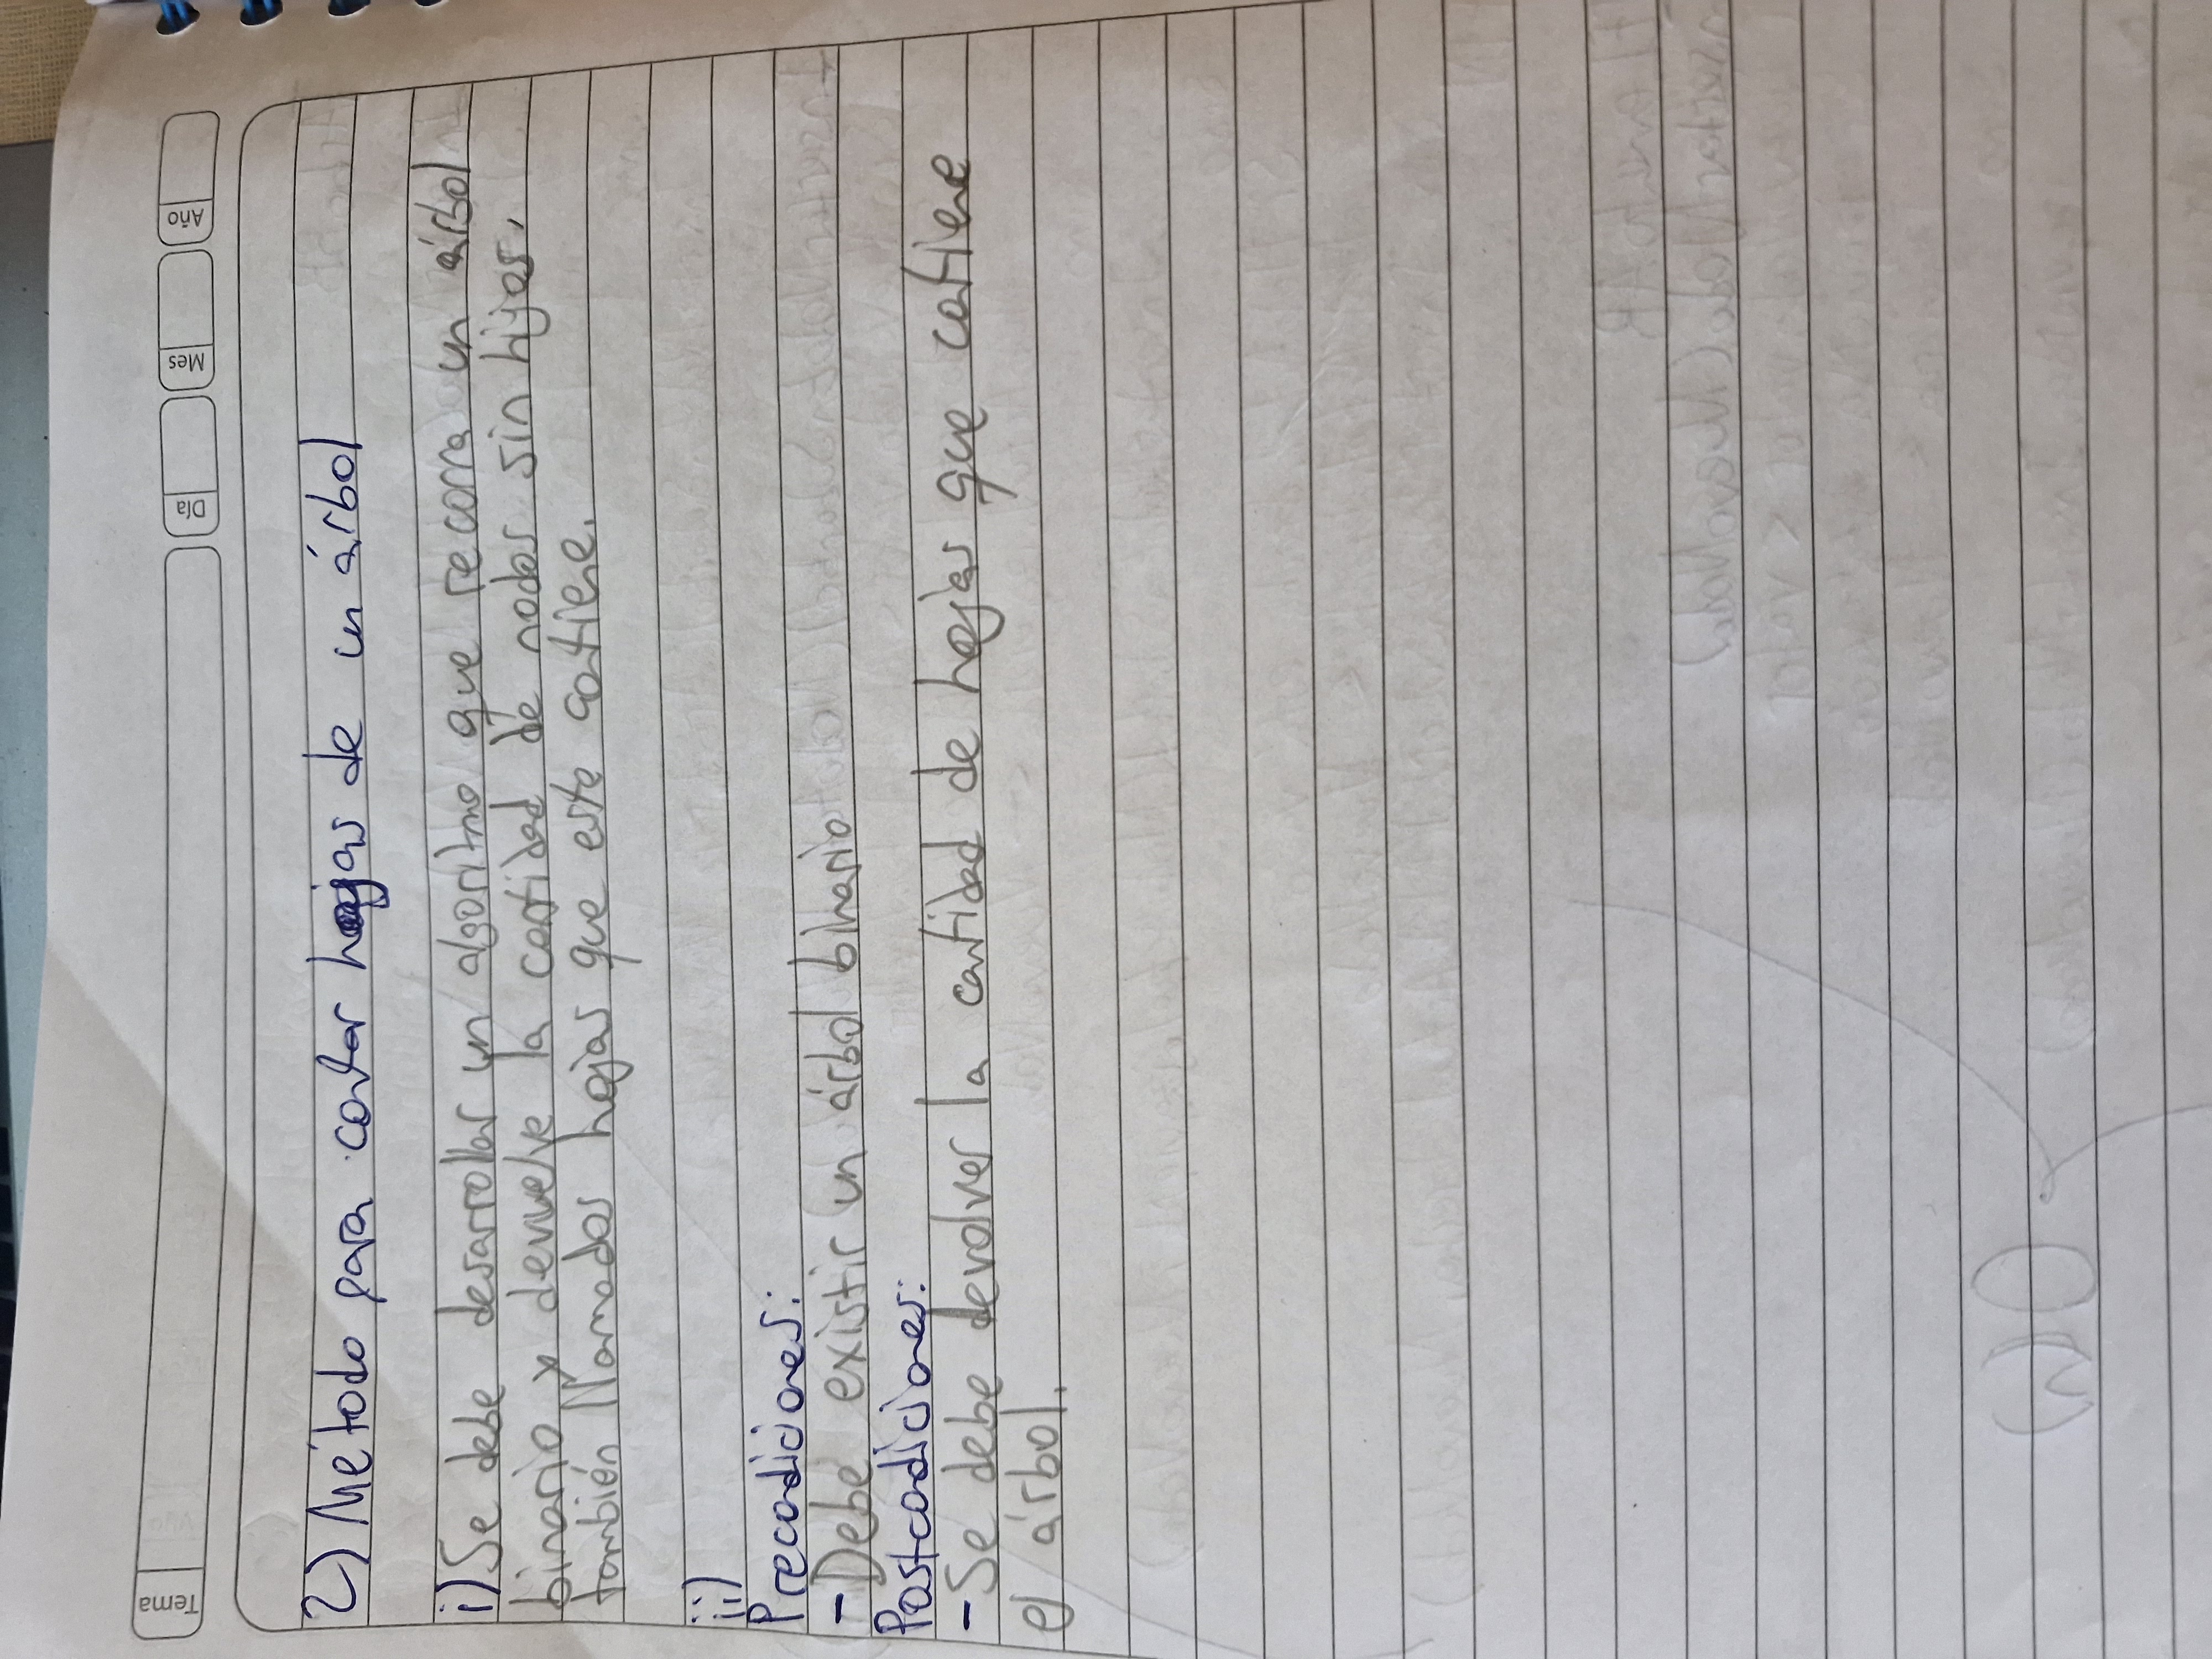 Tema
Día
Mes
Año
2) Método para contar hojas de un árbol
i) Se debe desarrollar un algoritmo que recorra un árbol
binario y devuelve la cantidad de nodos sin hijos,
también llamados hojas que este contiene.
ii)
Precondiciones:
- Debe existir un árbol binario
Postcondiciones:
- Se debe devolver la cantidad de hojas que contiene
el árbol.